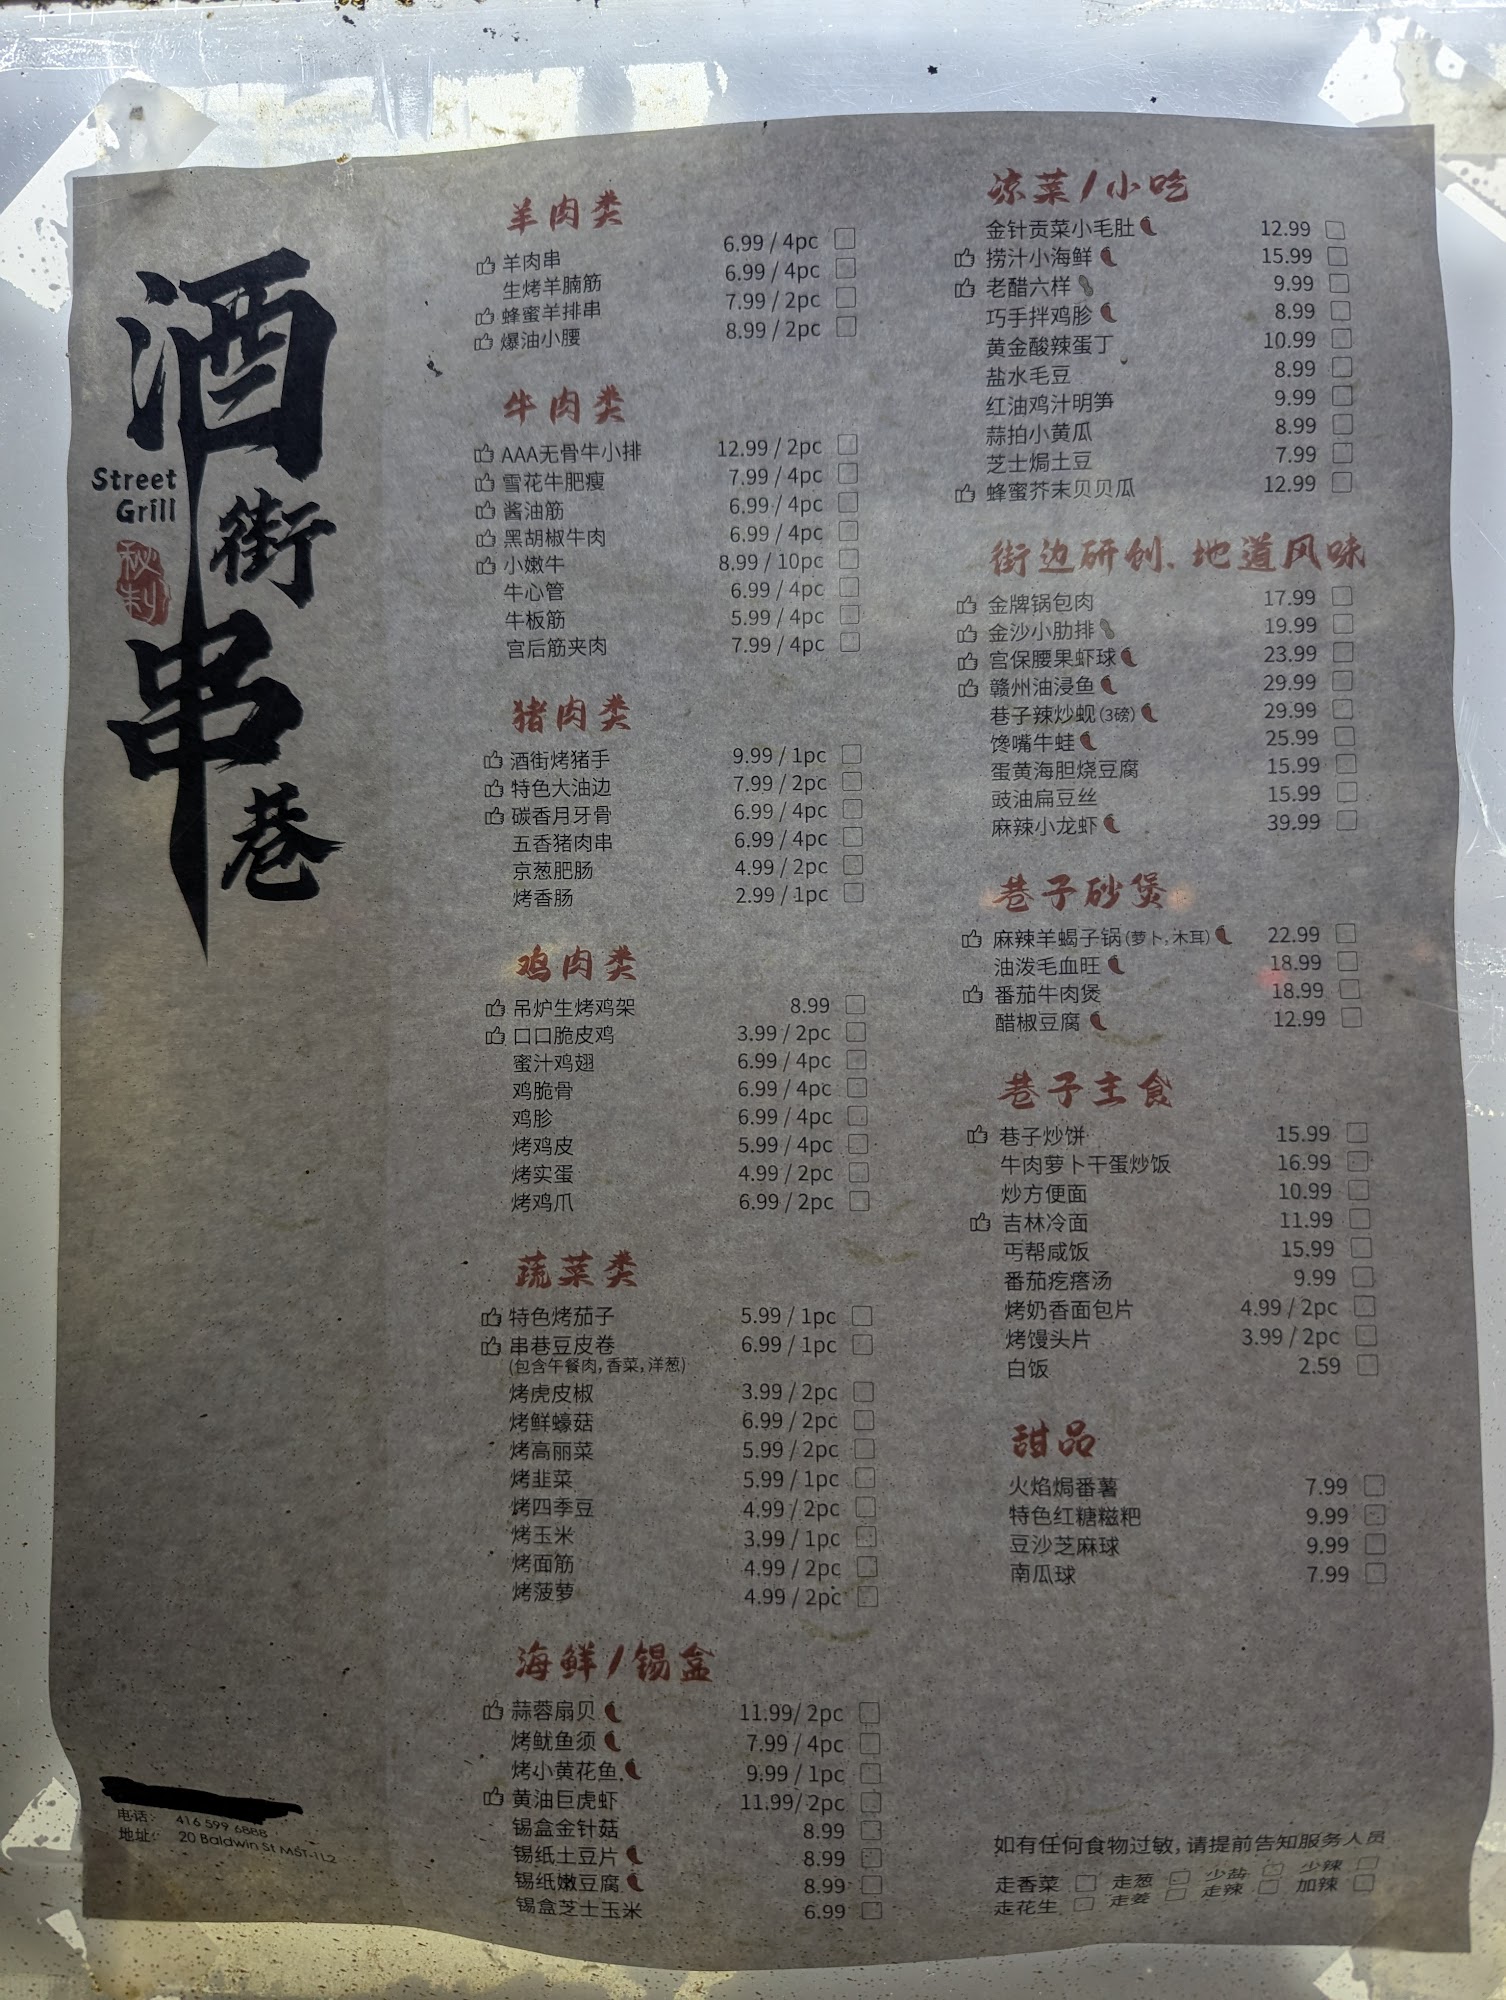 酒街串巷
Street
Grill
秘制
羊肉类
羊肉串 6.99 / 4pc
生烤羊腩筋 6.99 / 4pc
蜂蜜羊排串 7.99 / 2pc
爆油小腰 8.99 / 2pc
牛肉类
AAA无骨牛小排 12.99 / 2pc
雪花牛肥瘦 7.99 / 4pc
酱油筋 6.99 / 4pc
黑胡椒牛肉 6.99 / 4pc
小嫩牛 8.99 / 10pc
牛心管 6.99 / 4pc
牛板筋 5.99 / 4pc
宫后筋夹肉 7.99 / 4pc
猪肉类
酒街烤猪手 9.99 / 1pc
特色大油边 7.99 / 2pc
碳香月牙骨 6.99 / 4pc
五香猪肉串 6.99 / 4pc
京葱肥肠 4.99 / 2pc
烤香肠 2.99 / 1pc
鸡肉类
吊炉生烤鸡架 8.99
口口脆皮鸡 3.99 / 2pc
蜜汁鸡翅 6.99 / 4pc
鸡脆骨 6.99 / 4pc
鸡胗 6.99 / 4pc
烤鸡皮 5.99 / 4pc
烤实蛋 4.99 / 2pc
烤鸡爪 6.99 / 2pc
蔬菜类
特色烤茄子 5.99 / 1pc
串巷豆皮卷 6.99 / 1pc
(包含午餐肉, 香菜, 洋葱)
烤虎皮椒 3.99 / 2pc
烤鲜蠔菇 6.99 / 2pc
烤高丽菜 5.99 / 2pc
烤韭菜 5.99 / 1pc
烤四季豆 4.99 / 2pc
烤玉米 3.99 / 1pc
烤面筋 4.99 / 2pc
烤菠萝 4.99 / 2pc
海鲜/锡盒
蒜蓉扇贝 11.99/ 2pc
烤鱿鱼须 7.99 / 4pc
烤小黄花鱼 9.99 / 1pc
黄油巨虎虾 11.99/ 2pc
锡盒金针菇 8.99
锡纸土豆片 8.99
锡纸嫩豆腐 8.99
锡盒芝士玉米 6.99
凉菜/小吃
金针贡菜小毛肚 12.99
捞汁小海鲜 15.99
老醋六样 9.99
巧手拌鸡胗 8.99
黄金酸辣蛋丁 10.99
盐水毛豆 8.99
红油鸡汁明笋 9.99
蒜拍小黄瓜 8.99
芝士焗土豆 7.99
蜂蜜芥末贝贝瓜 12.99
街边研创, 地道风味
金牌锅包肉 17.99
金沙小肋排 19.99
宫保腰果虾球 23.99
赣州油浸鱼 29.99
巷子辣炒蚬 (3磅) 29.99
馋嘴牛蛙 25.99
蛋黄海胆烧豆腐 15.99
豉油扁豆丝 15.99
麻辣小龙虾 39.99
巷子砂煲
麻辣羊蝎子锅 (萝卜, 木耳) 22.99
油泼毛血旺 18.99
番茄牛肉煲 18.99
醋椒豆腐 12.99
巷子主食
巷子炒饼 15.99
牛肉萝卜干蛋炒饭 16.99
炒方便面 10.99
吉林冷面 11.99
丐帮咸饭 15.99
番茄疙瘩汤 9.99
烤奶香面包片 4.99 / 2pc
烤馒头片 3.99 / 2pc
白饭 2.59
甜品
火焰焗番薯 7.99
特色红糖糍粑 9.99
豆沙芝麻球 9.99
南瓜球 7.99
电话: 416 599 6888
地址: 20 Baldwin St M5T-1L2
如有任何食物过敏, 请提前告知服务人员
走香菜 走葱 少盐 少辣
走花生 走姜 走辣 加辣